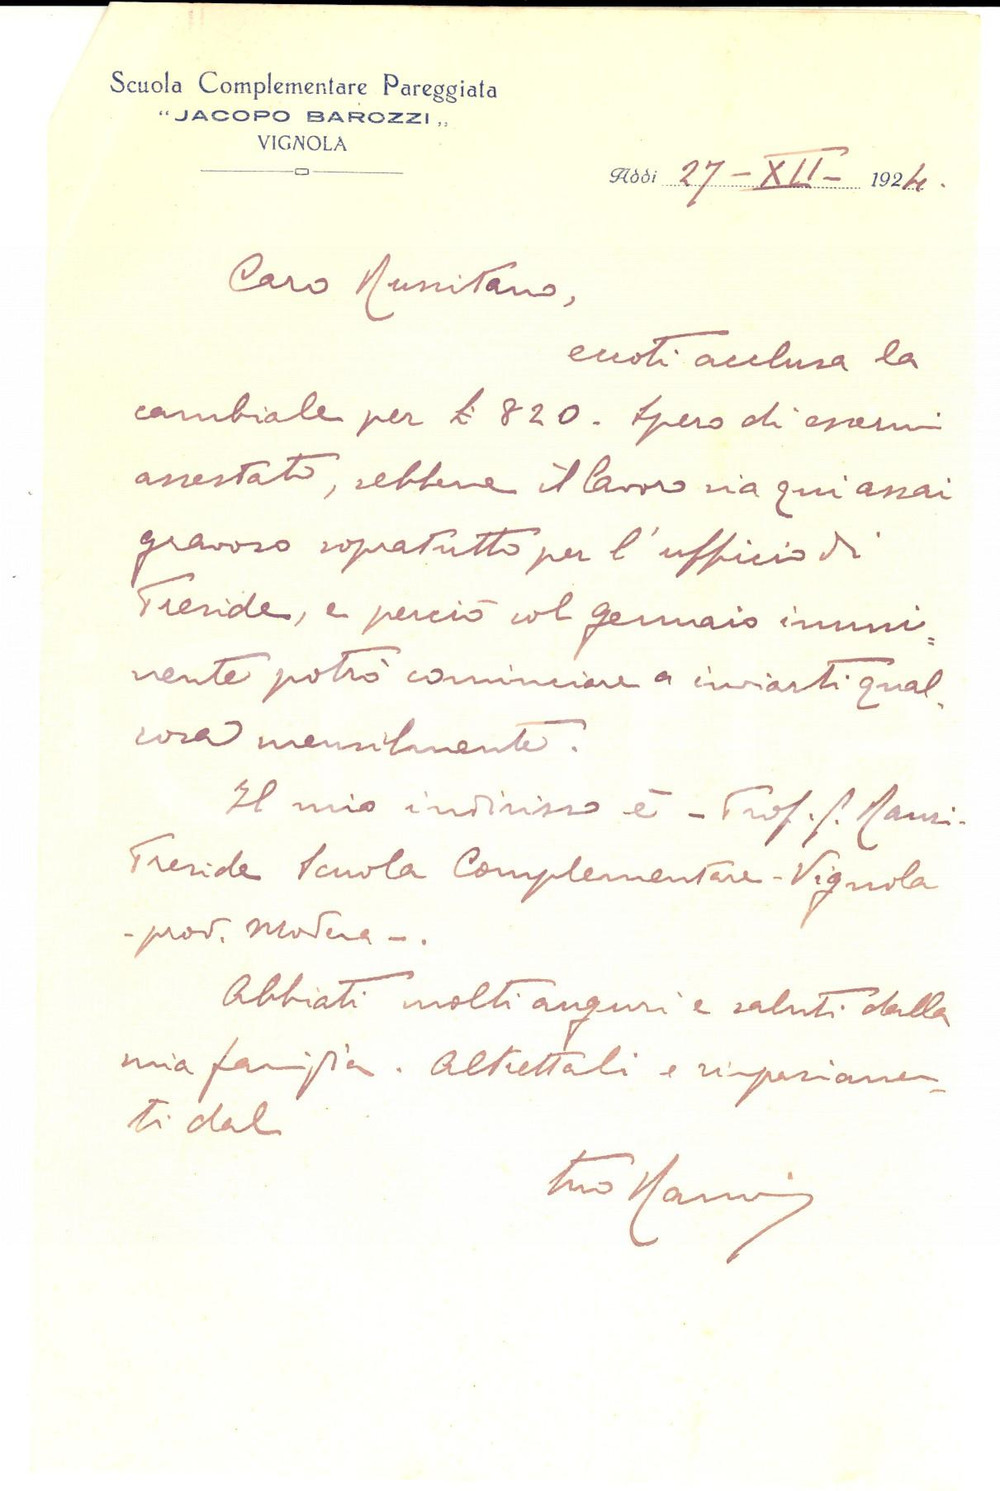 Scuola Complementare Pareggiata
"JACOPO BAROZZI„
VIGNOLA
Addì 27-XII- 1924.
Caro Mussitano,
eccoti acclusa la
cambiale per £ 820. Spero di essermi
assestato, sebbene il lavoro sia qui assai
gravoso sopratutto per l'ufficio di
Preside, e perciò col gennaio immi=
nente potrò cominciare a inviarti qual-
cosa mensilmente.
Il mio indirizzo è - Prof. G.
Preside Scuola Complementare - Vignola
- prov. Modena -.
Abbiati molti auguri e saluti dalla
mia famiglia. Altrettali e ringraziamen-
ti dal
tuo